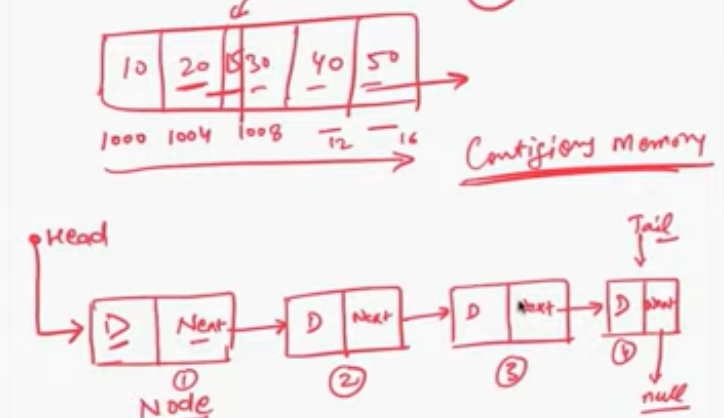 10 20 15 30 40 50
1000 1004 1008 12 16
Contigious Memory
Head
Tail
D Next D Next D Next D Next
1 2 3 4
Node
null